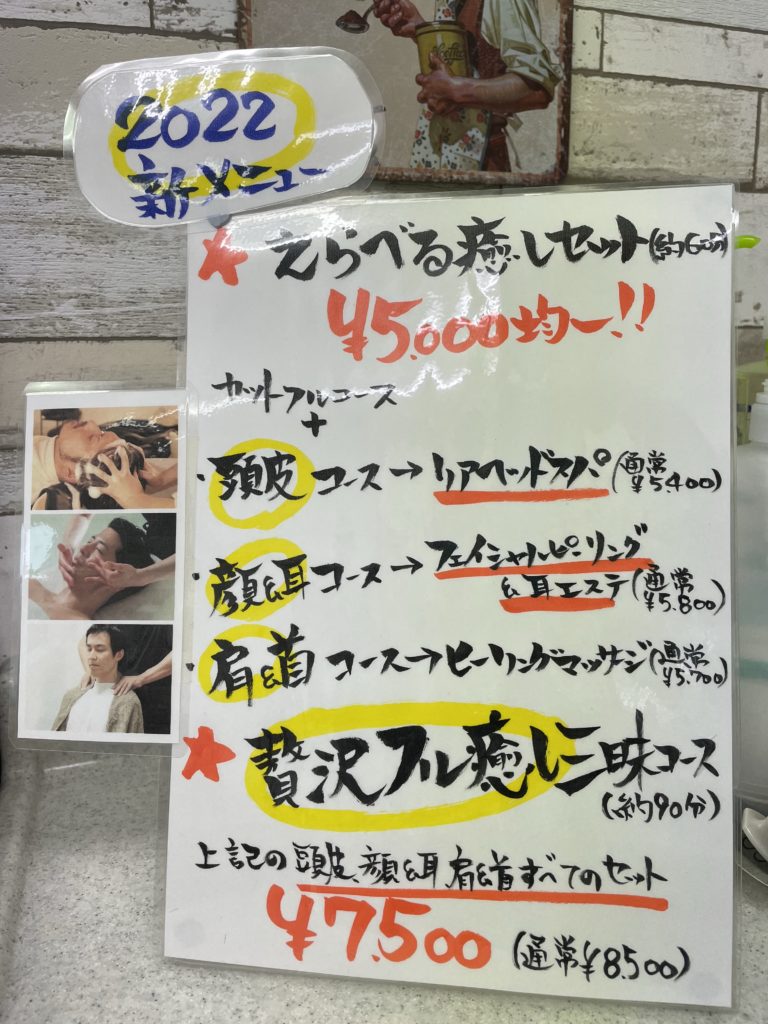 2022
新メニュー
★えらべる癒しセット(約60分)
¥5,000均一!!
カットフルコース
+
・頭皮コース→リアヘッドスパ(通常¥5,400)
・顔&耳コース→フェイシャルピーリング
&耳エステ(通常¥5,800)
・肩&首コース→ヒーリングマッサージ(通常¥5,700)
★贅沢フル癒し三昧コース
(約90分)
上記の頭皮、顔&耳、肩&首すべてのセット
¥7,500(通常¥8,500)